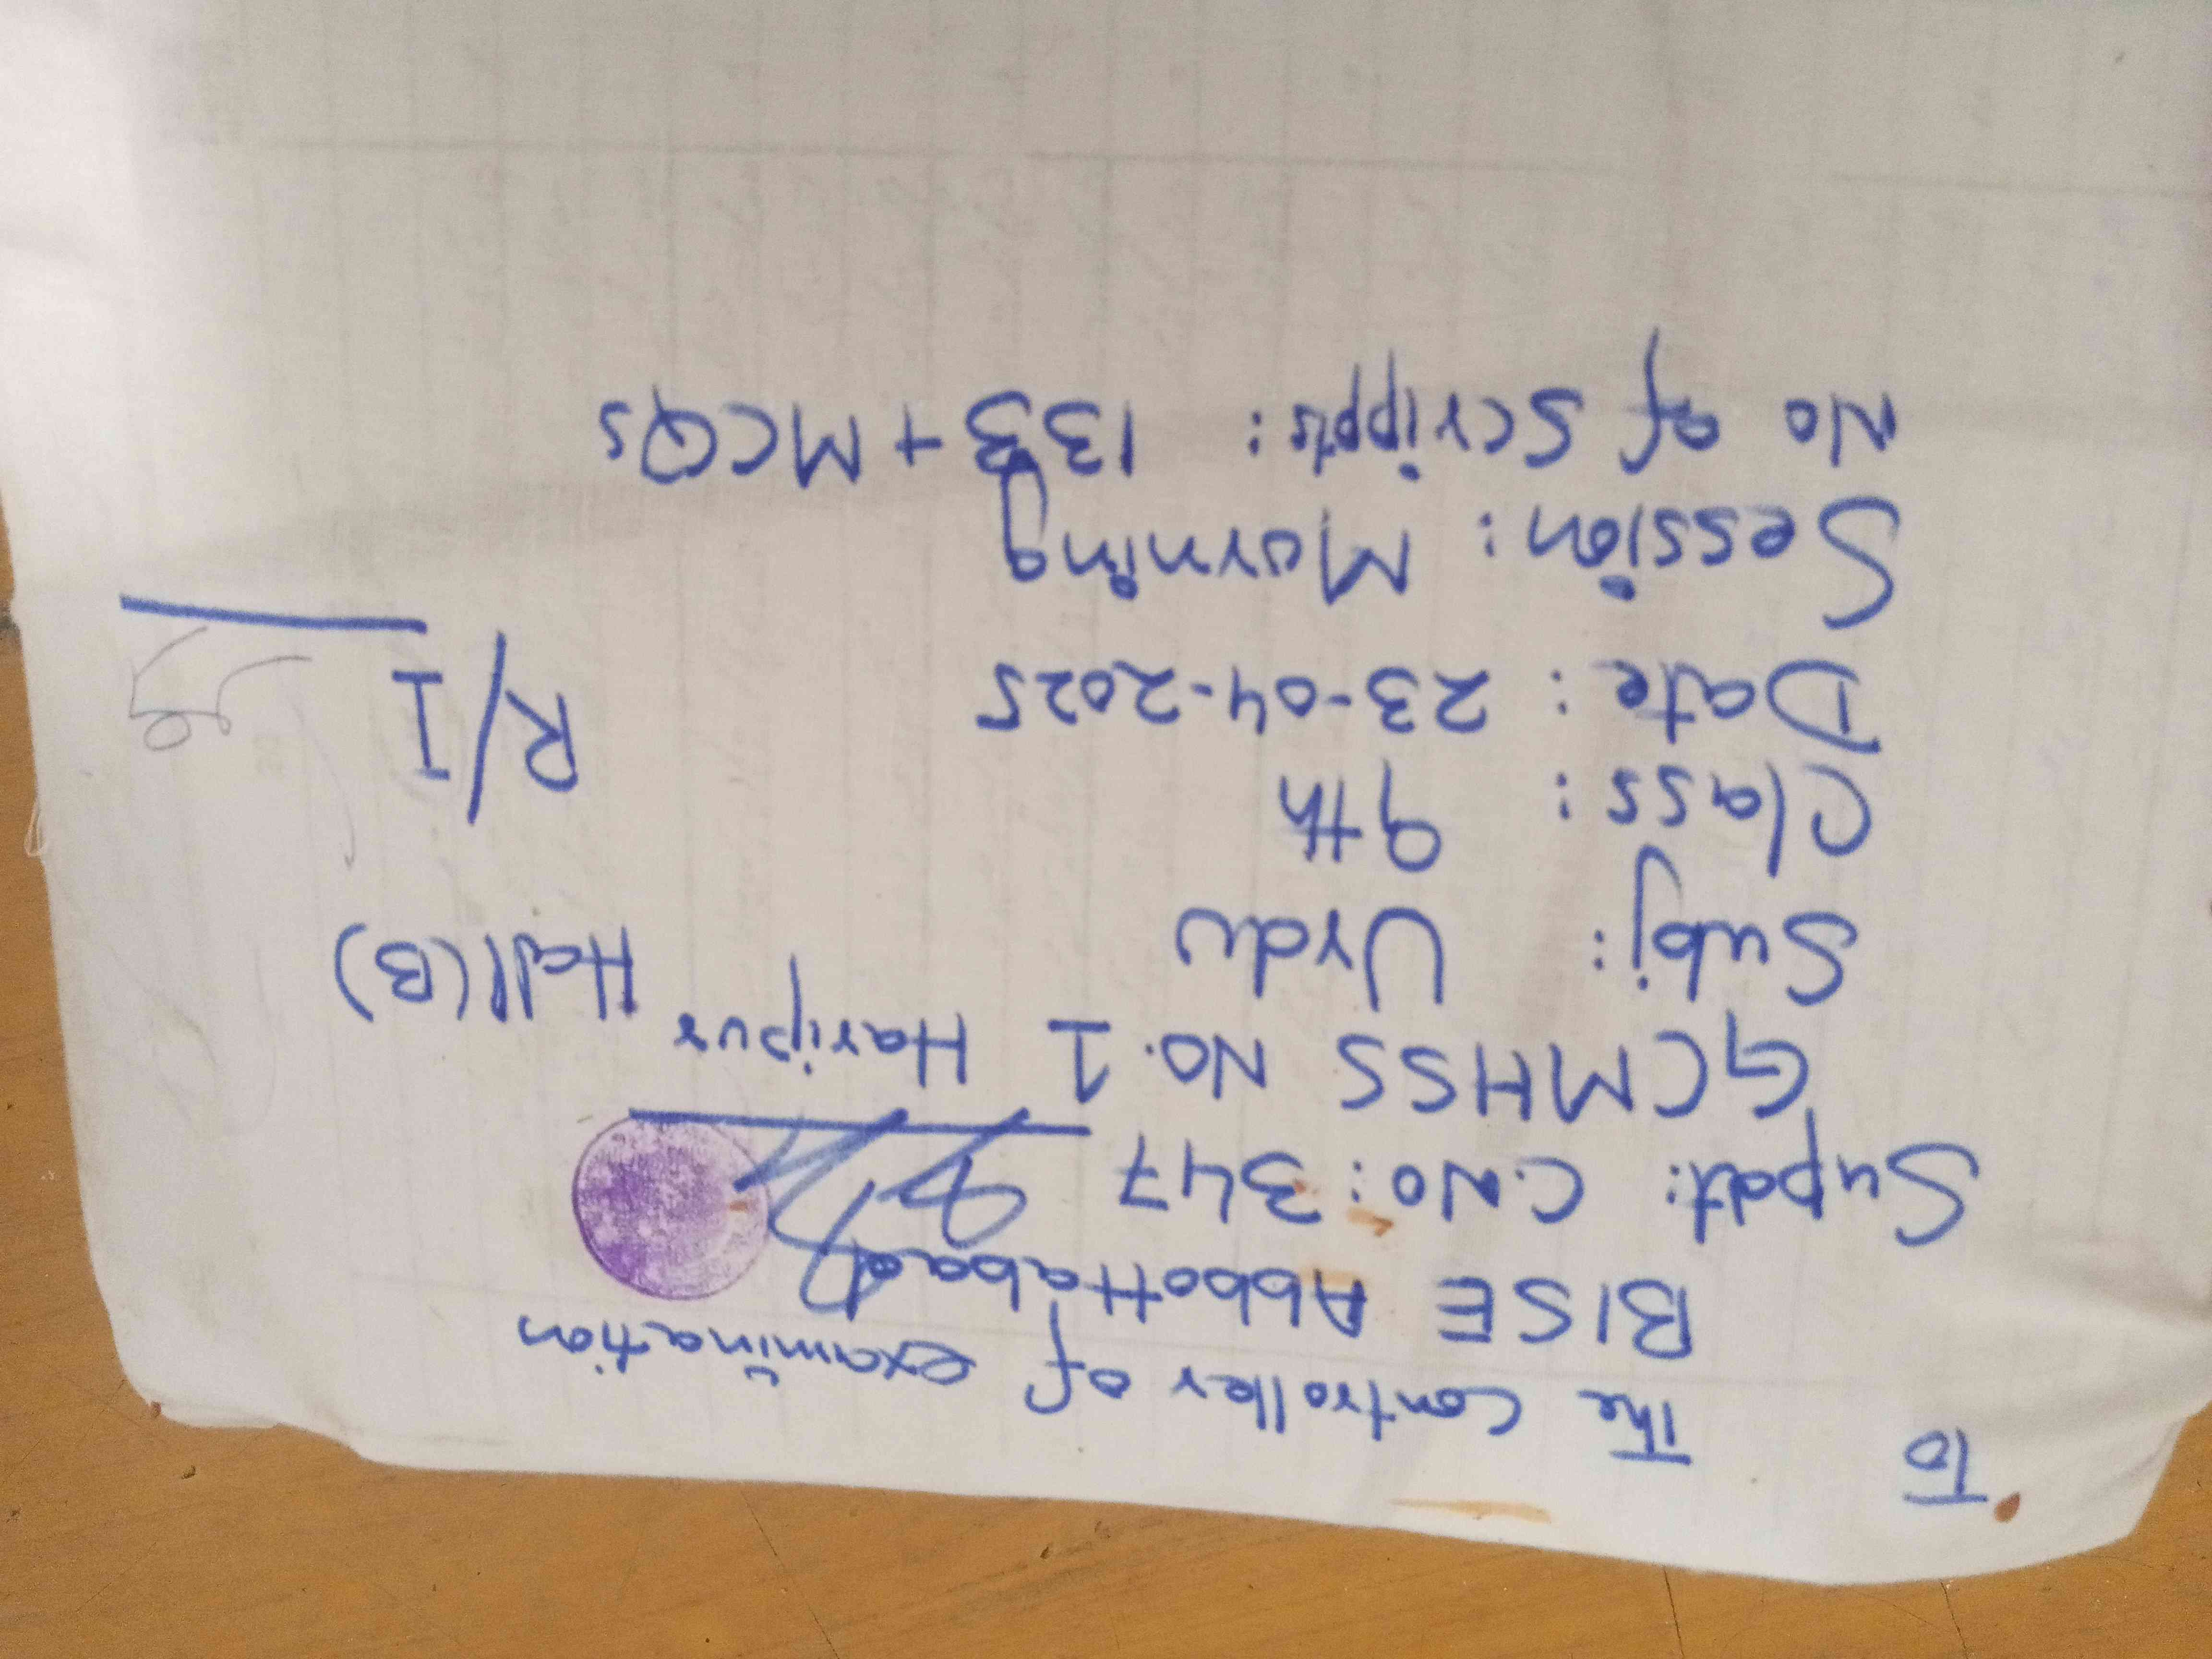 To
The Controller of examination
BISE Abbottabad
Supdt: C.No: 347
GCMHSS No.1 Haripur Hall(B)
Subj: Urdu
Class: 9th
Date: 23-04-2025 R/I
Session: Morning
No of Scripts: 133 + MCQs